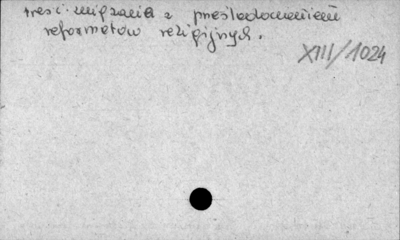 treść: migracja z prześladowaniem
reformatów religijnych.
XIII/1024